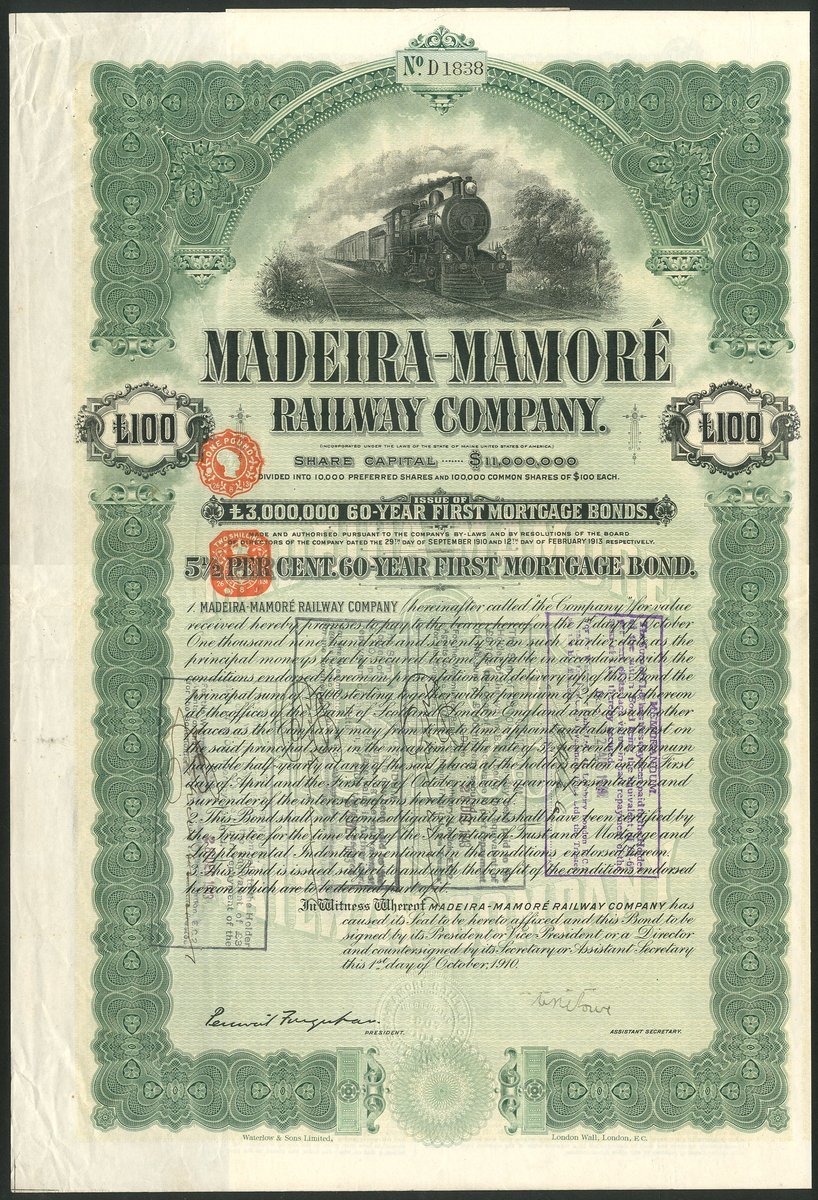 No. D 1838
MADEIRA-MAMORÉ
RAILWAY COMPANY.
(INCORPORATED UNDER THE LAWS OF THE STATE OF MAINE UNITED STATES OF AMERICA.)
£100
£100
SHARE CAPITAL ------ $11,000,000
DIVIDED INTO 10,000 PREFERRED SHARES AND 100,000 COMMON SHARES OF $100 EACH.
ONE POUND
ISSUE OF
£3,000,000 60-YEAR FIRST MORTGAGE BONDS.
MADE AND AUTHORISED PURSUANT TO THE COMPANY'S BY-LAWS AND BY RESOLUTIONS OF THE BOARD
OF DIRECTORS OF THE COMPANY DATED THE 29TH DAY OF SEPTEMBER 1910 AND 12TH DAY OF FEBRUARY 1913 RESPECTIVELY.
TWO SHILLINGS
5½ PER CENT. 60-YEAR FIRST MORTGAGE BOND.
1. MADEIRA-MAMORÉ RAILWAY COMPANY (hereinafter called the "Company") for value
received hereby promises to pay to the bearer hereof on the 1st day of October
One thousand nine hundred and seventy or on such earlier date as the
principal moneys hereby secured become payable in accordance with the
conditions endorsed hereon on presentation and delivery up of this Bond the
principal sum of £100 sterling together with a premium of 2 per cent thereon
at the offices of the Bank of Scotland London England and at such other
places as the Company may from time to time appoint and also interest on
the said principal sum in the meantime at the rate of 5½ per cent per annum
payable half-yearly at any of the said places at the holders option on the First
day of April and the First day of October in each year on presentation and
surrender of the interest coupons hereto annexed.
2. This Bond shall not become obligatory until it shall have been certified by
the Trustee for the time being of the Indenture of Trust and Mortgage and
Supplemental Indenture mentioned in the conditions endorsed hereon.
3. This Bond is issued subject to and with the benefit of the conditions endorsed
hereon which are to be deemed part of it.
In Witness Whereof MADEIRA-MAMORÉ RAILWAY COMPANY has
caused its Seal to be hereto affixed and this Bond to be
signed by its President or Vice President or a Director
and countersigned by its Secretary or Assistant Secretary
this 1st day of October, 1910.
MEMORANDUM.
Percival Farquhar
PRESIDENT.
ASSISTANT SECRETARY.
Waterlow & Sons Limited,
London Wall, London, E.C.